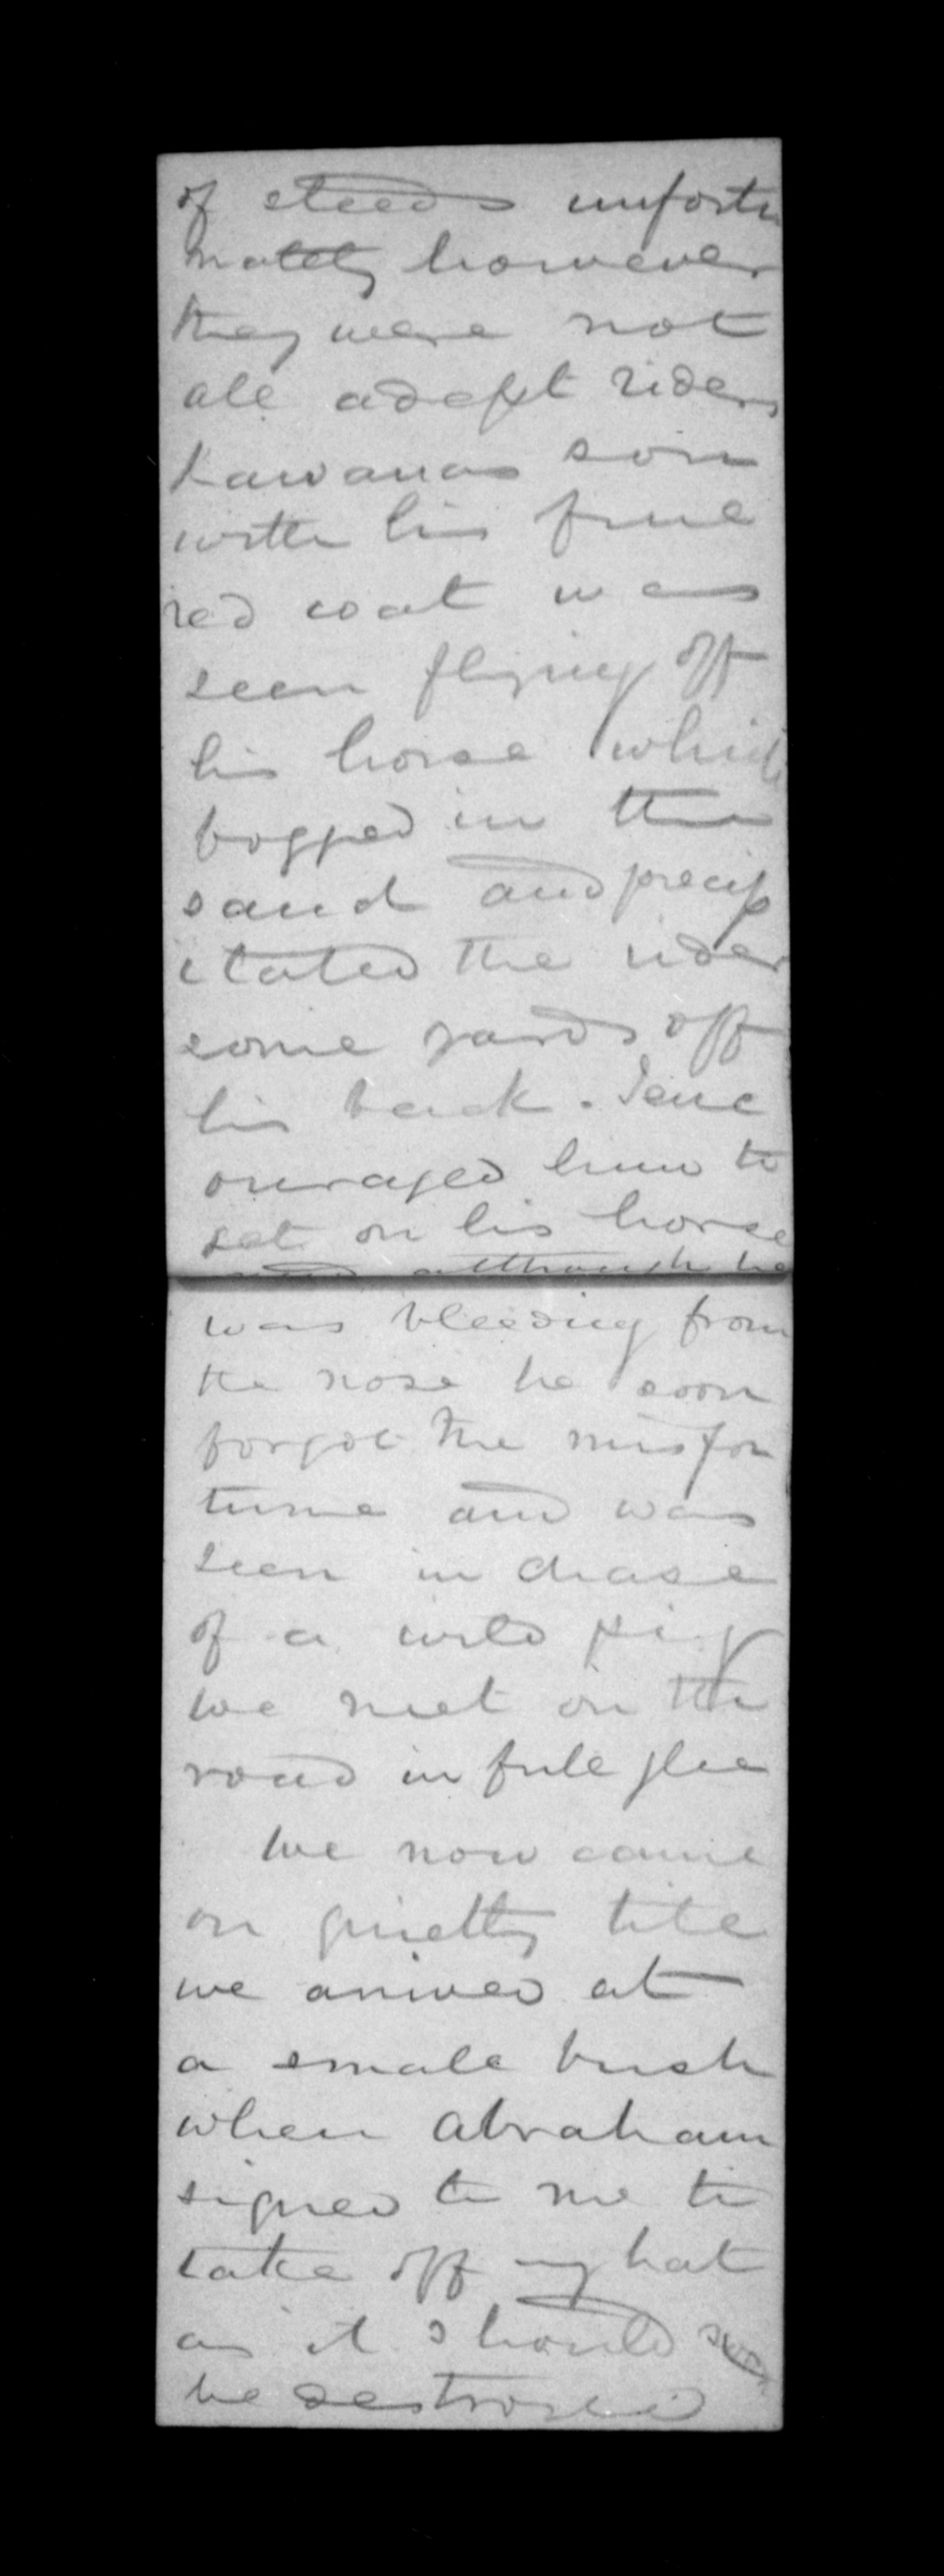 of steeds unfortu
nately however
they were not
all adept riders
Kawanas son
with his fine
red coat was
seen flying off
his horse which
bogged in the
sand and precip
itated the rider
some yards off
his back. I enc
ouraged him to
set on his horse
and although he
was bleeding from
the nose he soon
forgot the misfor
tune and was
seen in chase
of a wild pig
we met on the
road in full glee
We now came
on quietly till
we arrived at
a small bush
when Abraham
signed to me to
take off my hat
as it should
be destroyed